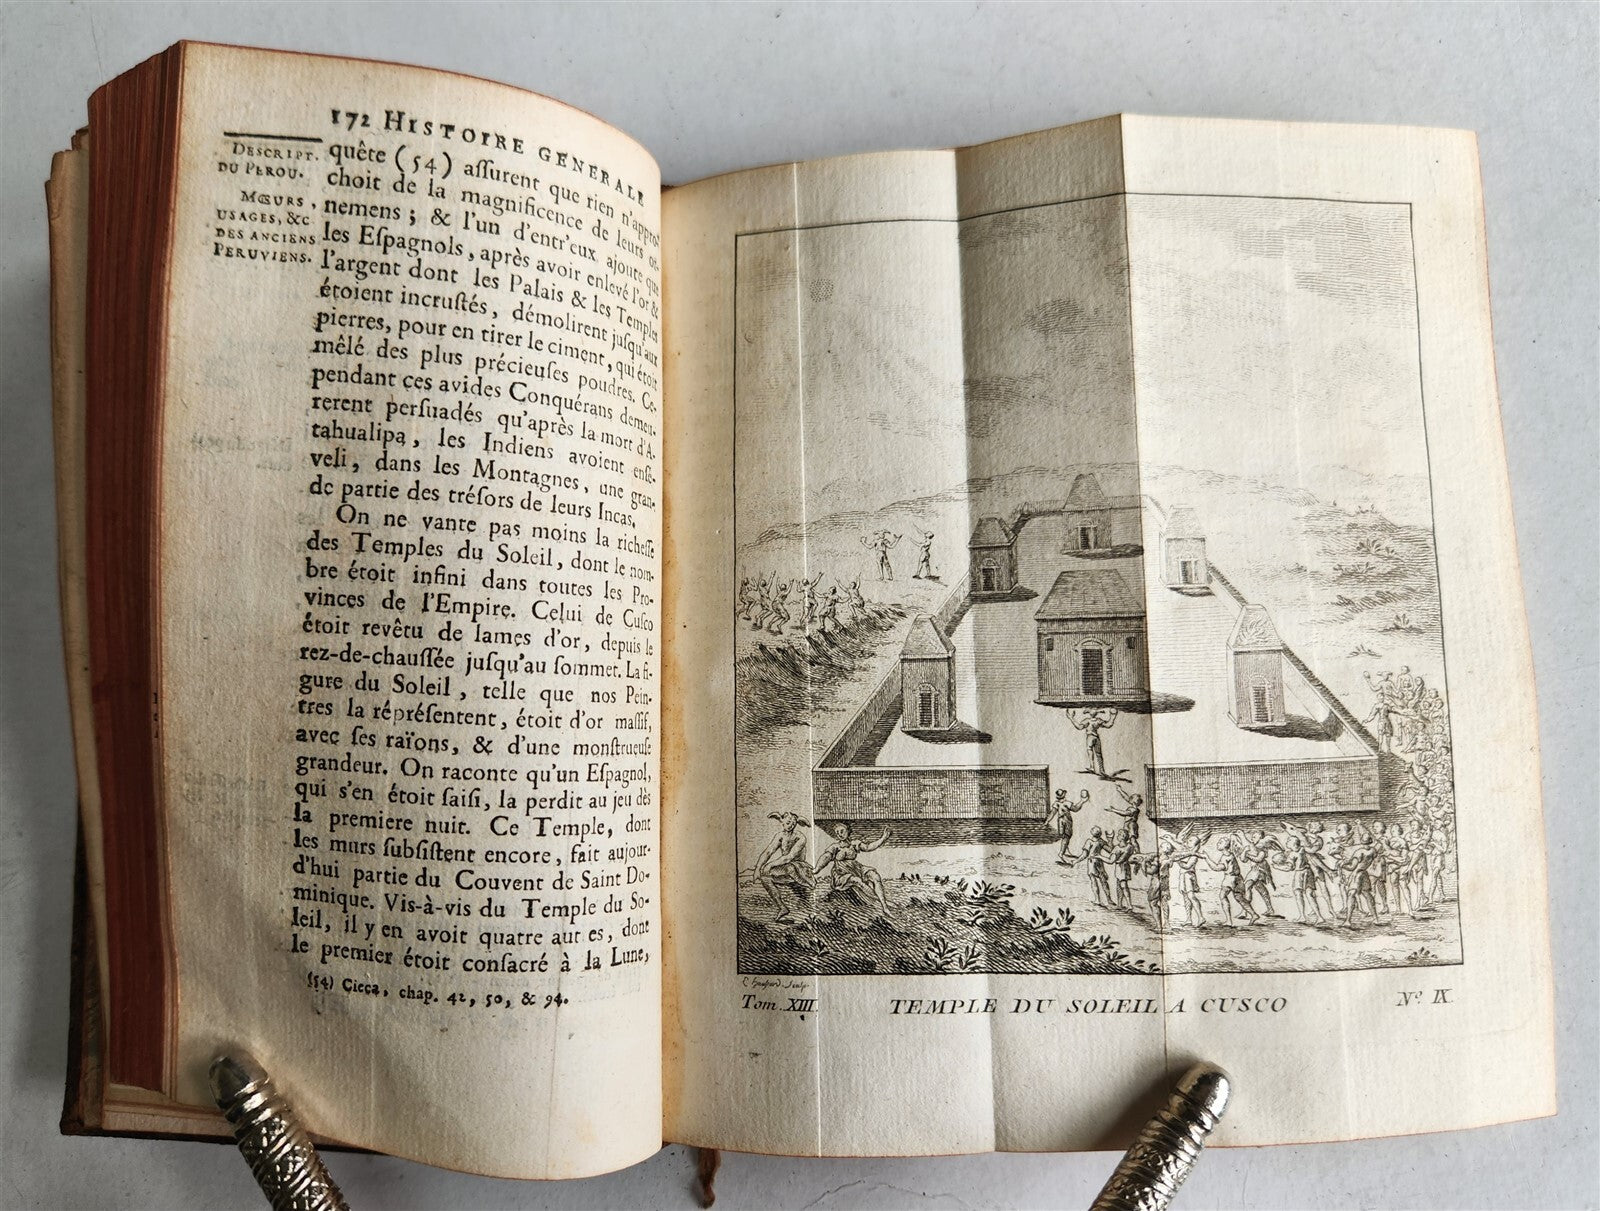 172 HISTOIRE GENERALE
DESCRIPT.
DU PEROU.
MŒURS,
USAGES, &c
DES ANCIENS
PERUVIENS.
quête (54) aſſurent que rien n'appro-
choit de la magnificence de leurs or-
nemens ; & l'un d'entr'eux ajoute que
les Eſpagnols, après avoir enlevé l'or &
l'argent dont les Palais & les Temples
étoient incruſtés, démolirent juſqu'aux
pierres, pour en tirer le ciment, qui étoit
mêlé des plus précieuſes poudres. Ce-
pendant ces avides Conquérans demeu-
rerent perſuadés qu'après la mort d'A-
tahualipa, les Indiens avoient enſe-
veli, dans les Montagnes, une gran-
de partie des tréſors de leurs Incas.
On ne vante pas moins la richeſſe
des Temples du Soleil, dont le nom-
bre étoit infini dans toutes les Pro-
vinces de l'Empire. Celui de Cuſco
étoit revêtu de lames d'or, depuis le
rez-de-chauſſée juſqu'au ſommet. La fi-
gure du Soleil, telle que nos Pein-
tres la répréſentent, étoit d'or maſſif,
avec ſes raïons, & d'une monſtrueuſe
grandeur. On raconte qu'un Eſpagnol,
qui s'en étoit ſaiſi, la perdit au jeu dès
la premiere nuit. Ce Temple, dont
les murs ſubſiſtent encore, fait aujour-
d'hui partie du Couvent de Saint Do-
minique. Vis-à-vis du Temple du So-
leil, il y en avoit quatre aut es, dont
le premier étoit conſacré à la Lune,
(54) Cieca, chap. 42, 50, & 94.
Sculp.
Tom. XIII. TEMPLE DU SOLEIL A CUSCO N.º IX.